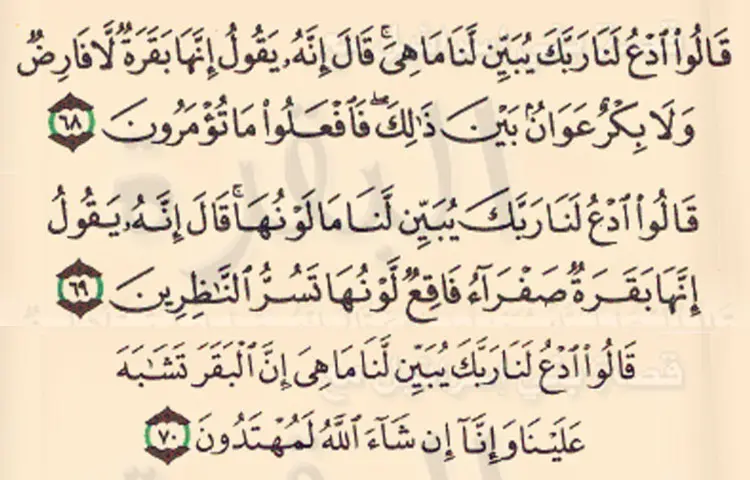 قَالُوا۟ ٱدْعُ لَنَا رَبَّكَ يُبَيِّن لَّنَا مَا هِىَ ۚ قَالَ إِنَّهُۥ يَقُولُ إِنَّهَا بَقَرَةٌ لَّا فَارِضٌ
وَلَا بِكْرٌ عَوَانٌۢ بَيْنَ ذَٰلِكَ ۖ فَٱفْعَلُوا۟ مَا تُؤْمَرُونَ ٦٨
قَالُوا۟ ٱدْعُ لَنَا رَبَّكَ يُبَيِّن لَّنَا مَا لَوْنُهَا ۚ قَالَ إِنَّهُۥ يَقُولُ
إِنَّهَا بَقَرَةٌ صَفْرَآءُ فَاقِعٌ لَّوْنُهَا تَسُرُّ ٱلنَّٰظِرِينَ ٦٩
قَالُوا۟ ٱدْعُ لَنَا رَبَّكَ يُبَيِّن لَّنَا مَا هِىَ إِنَّ ٱلْبَقَرَ تَشَٰبَهَ
عَلَيْنَا وَإِنَّآ إِن شَآءَ ٱللَّهُ لَمُهْتَدُونَ ٧٠